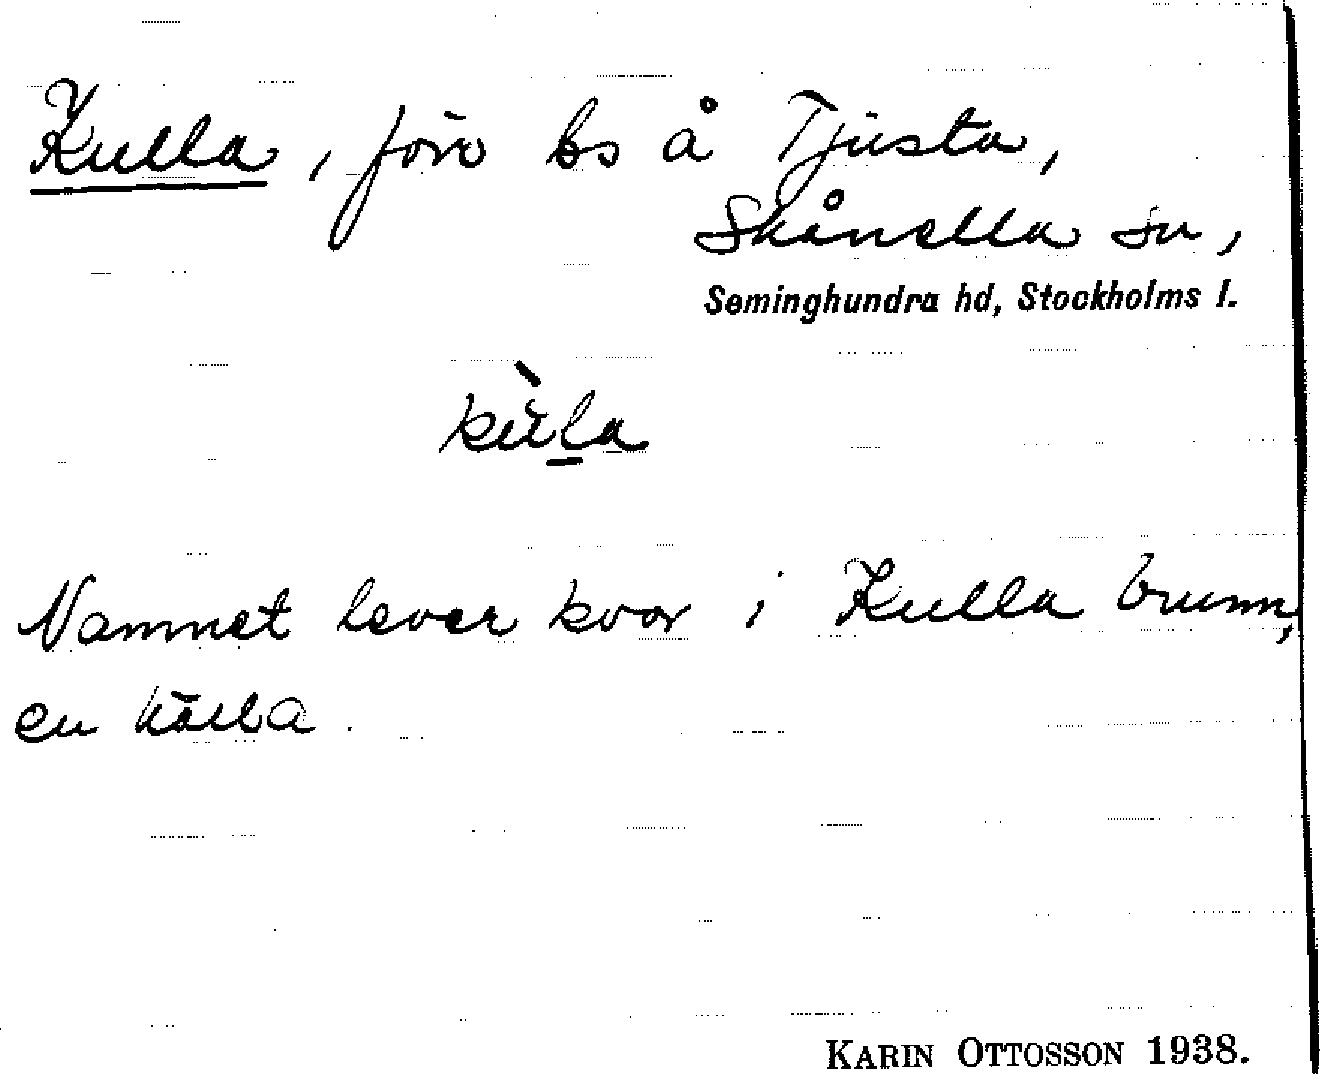 Kulla, förv bs å Tjusta,
Skånella sn,
Seminghundra hd, Stockholms l.
kùla
Namnet lever kvar i Kulla brunn,
en källa.
KARIN OTTOSSON 1938.